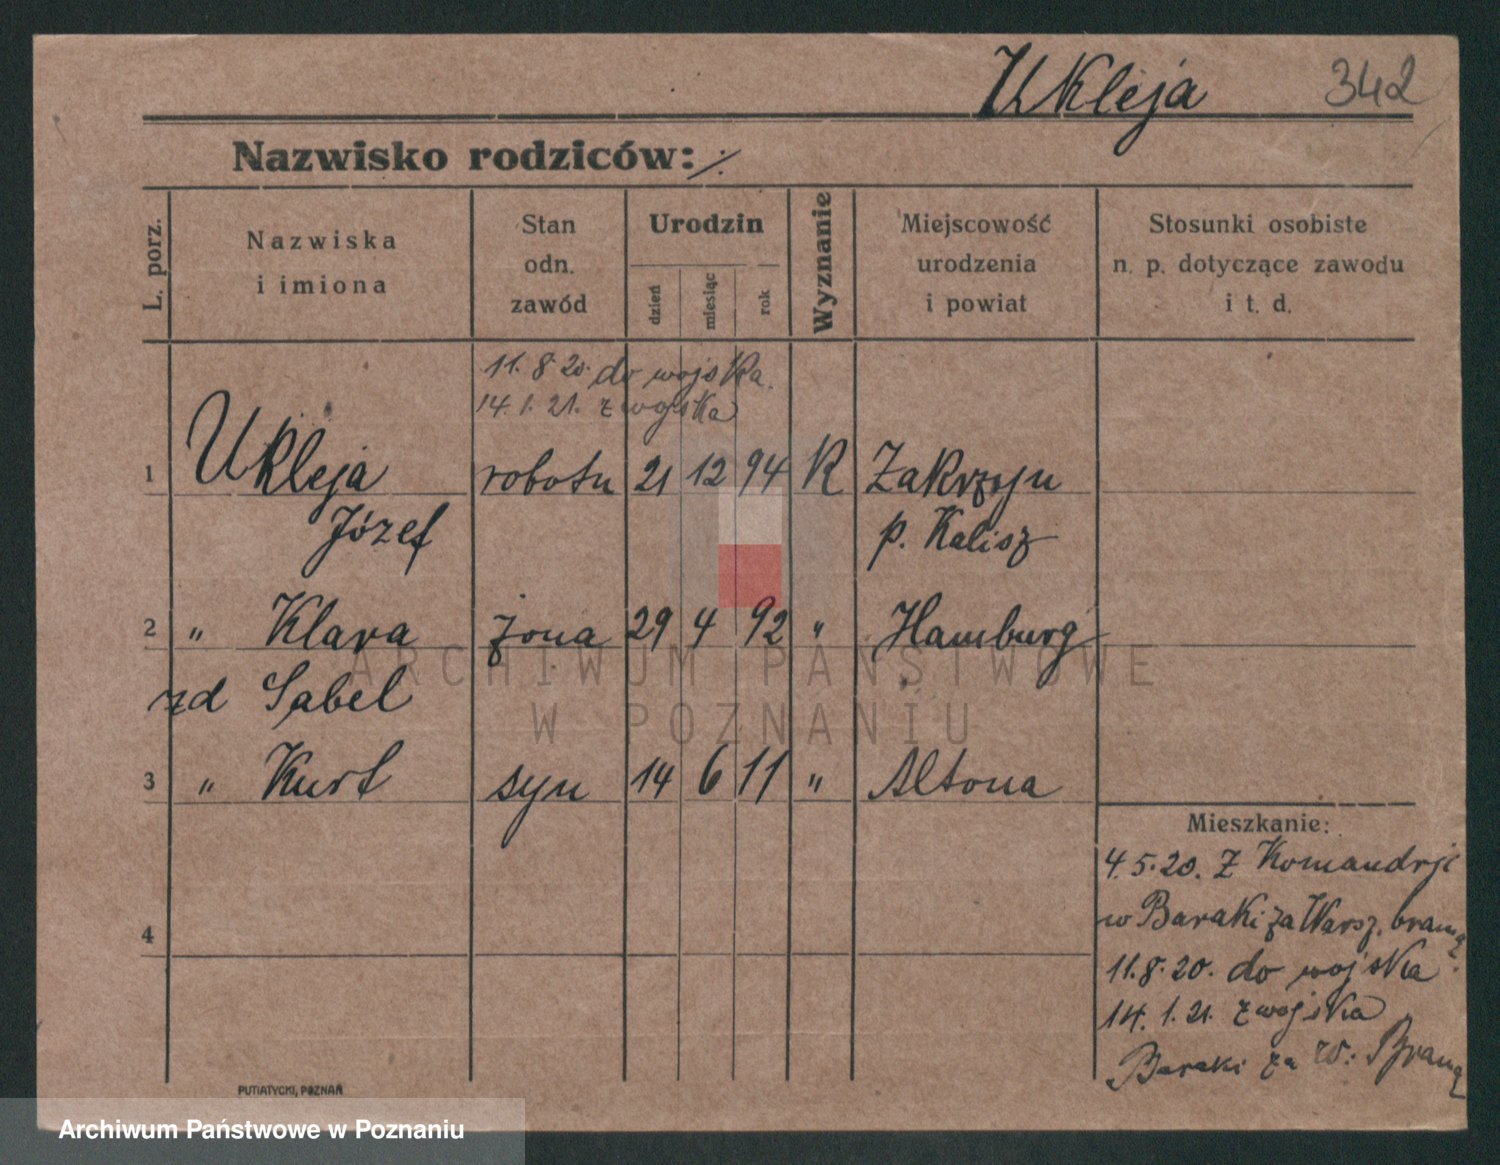 Ukleja 342
Nazwisko rodziców:
L. porz.
Nazwiska
i imiona
Stan
odn.
zawód
Urodzin
dzień
miesiąc
rok
Wyznanie
Miejscowość
urodzenia
i powiat
Stosunki osobiste
n. p. dotyczące zawodu
i t. d.
11.8.20. do wojska.
14.1.21. z wojska
1 Ukleja robotn 21 12 94 R Zakrzyn
Józef p. Kalisz
2 " Klara żona 29 4 92 " Hamburg
zd Sabel
3 " Kurt syn 14 6 11 " Altona
4
Mieszkanie:
4.5.20. Z Komandrji
w Baraki za Warsz. bramą.
11.8.20. do wojska
14.1.21. z wojska
Baraki za W. Bramą
PUTIATYCKI, POZNAŃ
ARCHIWUM PAŃSTWOWE
W POZNANIU
Archiwum Państwowe w Poznaniu